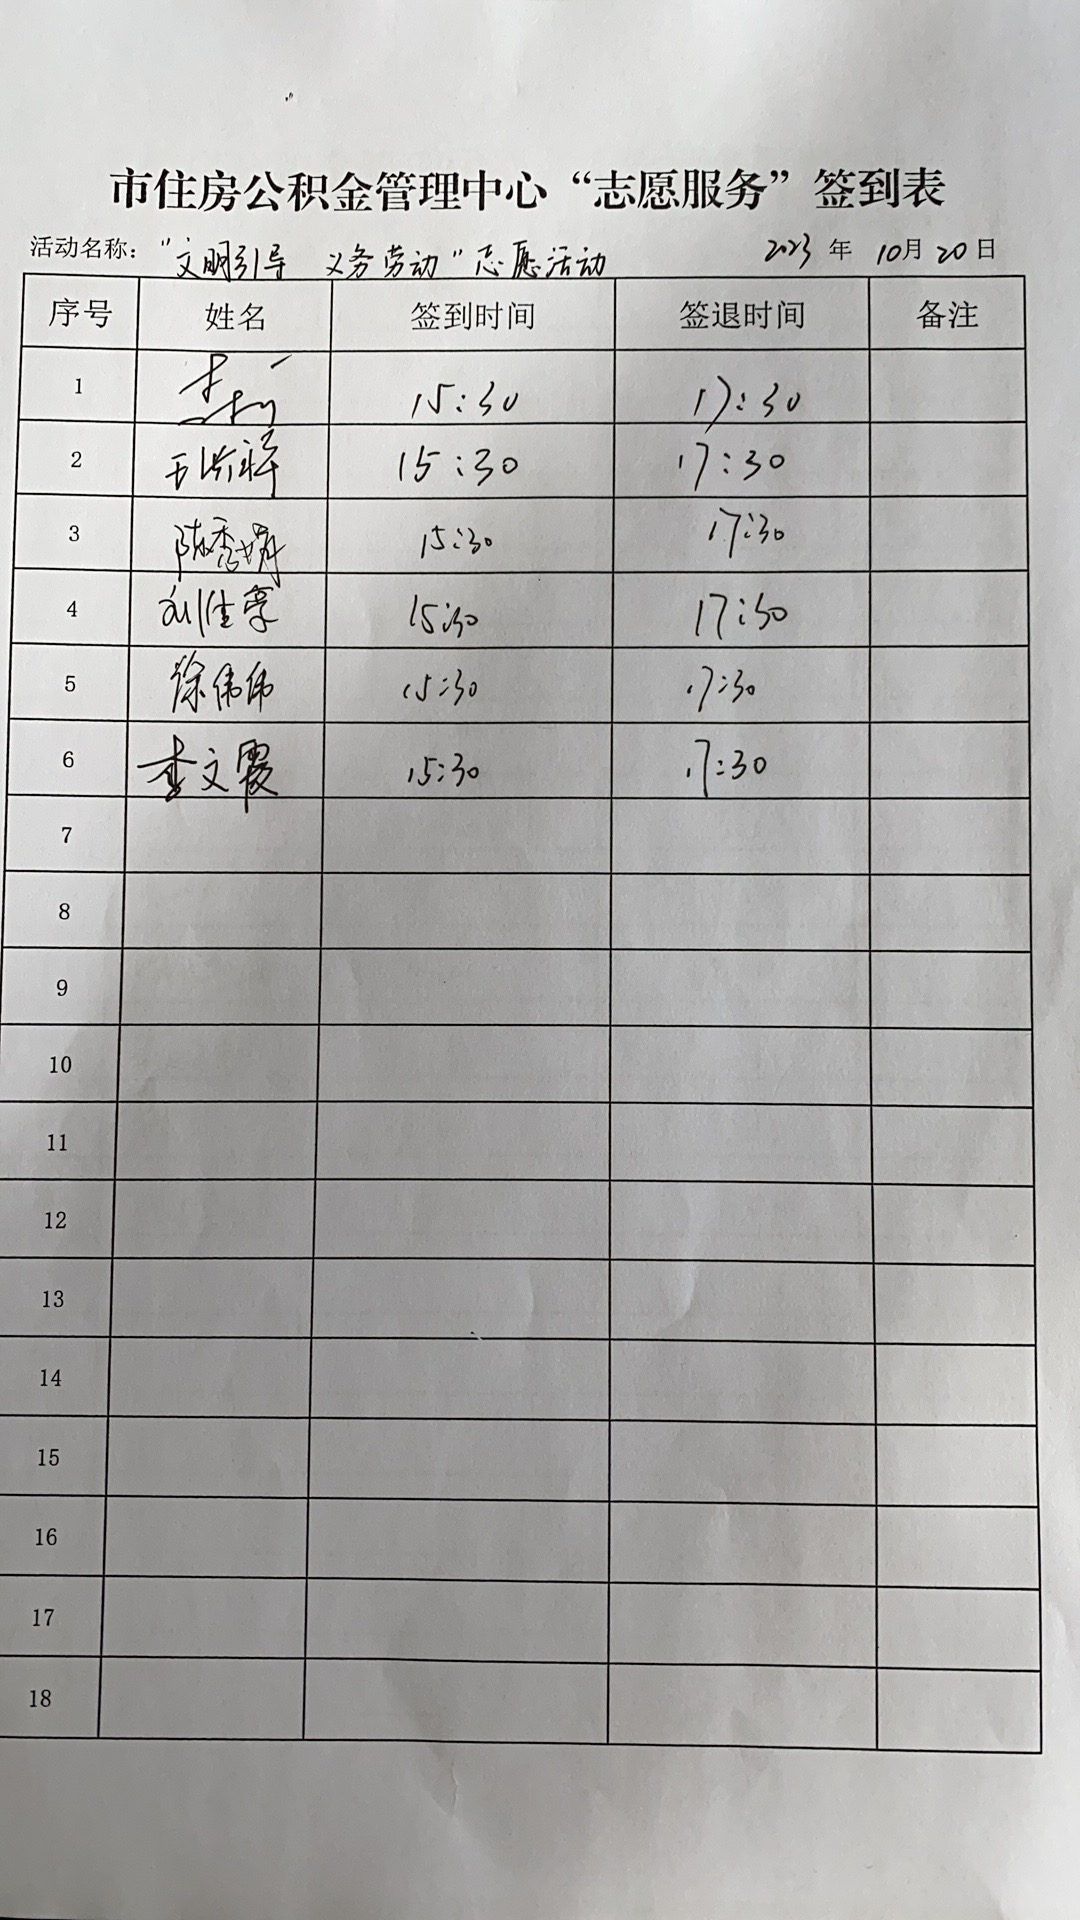 市住房公积金管理中心“志愿服务”签到表
活动名称：“文明引导 义务劳动”志愿活动 2023 年 10月 20 日
序号 姓名 签到时间 签退时间 备注
1 15:30 17:30
2 15:30 17:30
3 陈秀娟 15:30 17:30
4 刘佳豪 15:30 17:30
5 徐伟伟 15:30 17:30
6 李文霞 15:30 17:30
7
8
9
10
11
12
13
14
15
16
17
18